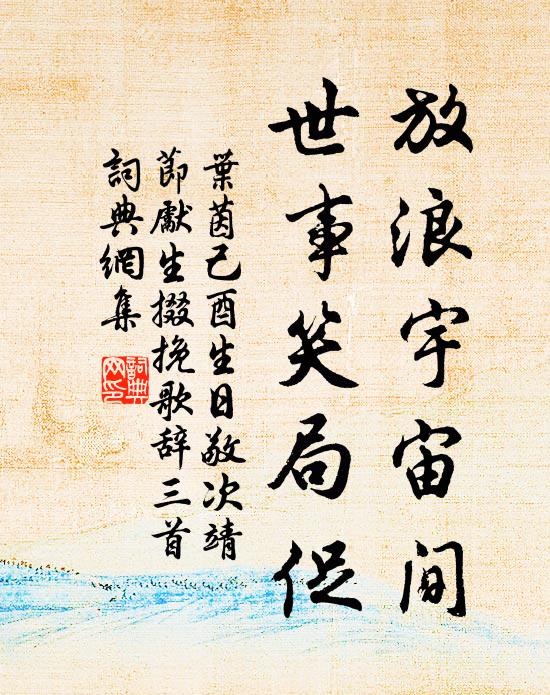 放浪宇宙间
世事笑局促
葉茵己酉生日敬次靖
節獻生掇挽歌辞三首
詞典網集
詞典網印